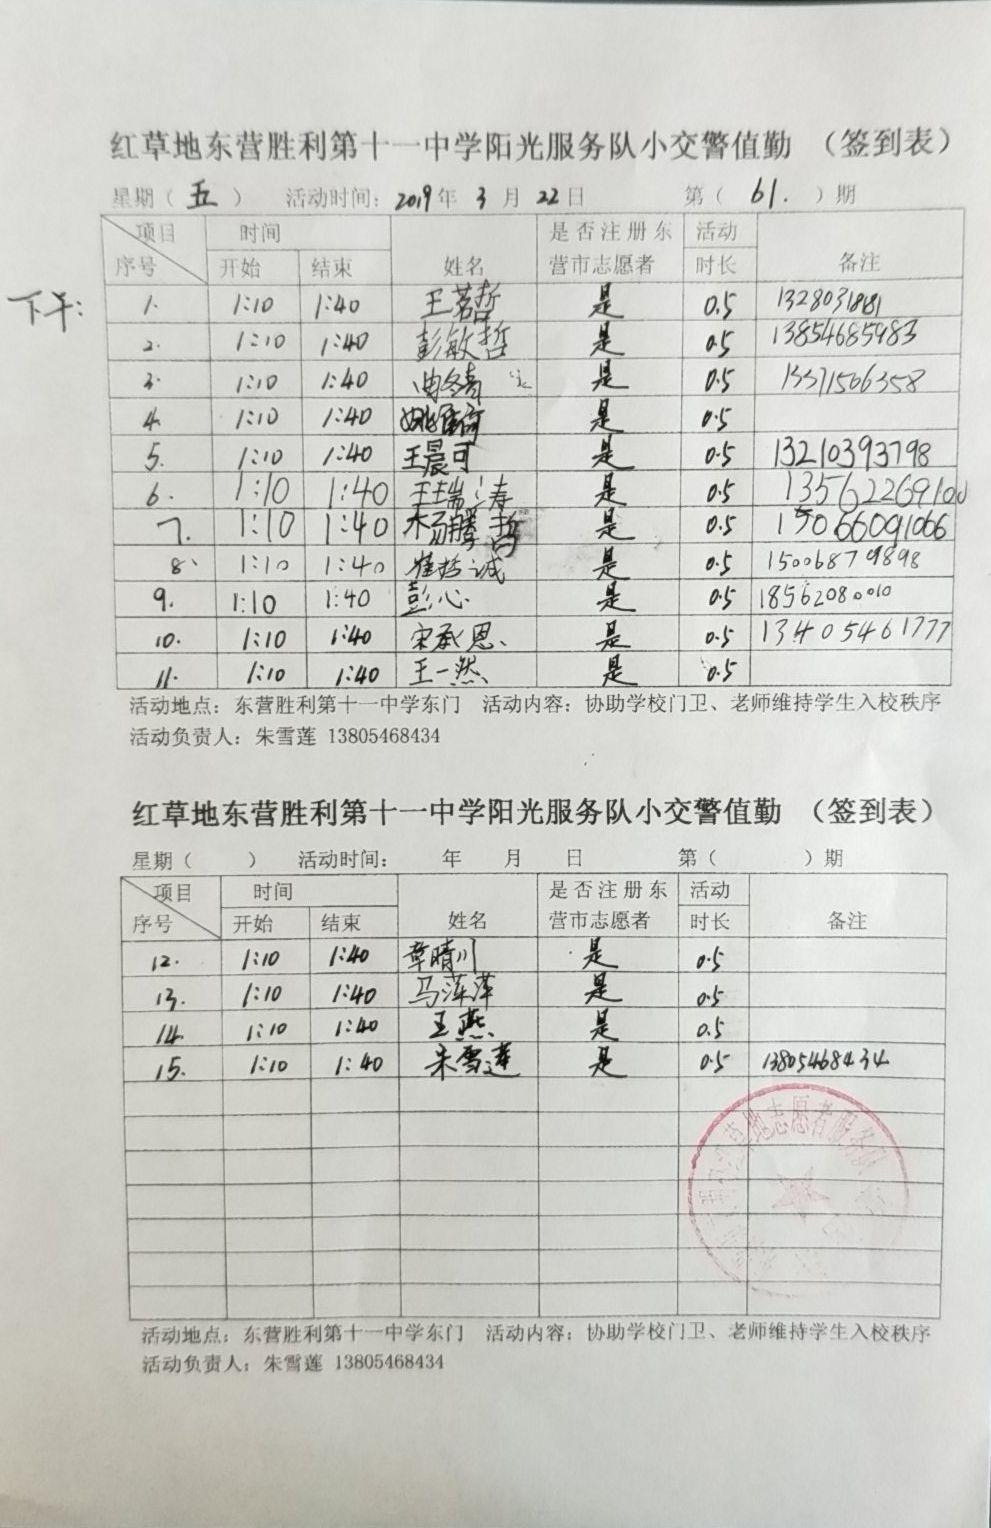 红草地东营胜利第十一中学阳光服务队小交警值勤 （签到表）
星期（ 五 ） 活动时间：2019年 3 月 22日 第（ 61. ）期
项目 时间 是否注册东 活动
序号 开始 结束 姓名 营市志愿者 时长 备注
下午：
1. 1:10 1:40 王茗哲 是 0.5 13280318181
2. 1:10 1:40 彭敏哲 是 0.5 13854685983
3. 1:10 1:40 曲冬青 是 0.5 13371506358
4. 1:10 1:40 是 0.5
5. 1:10 1:40 王晨可 是 0.5 13210393798
6. 1:10 1:40 王瑞涛 是 0.5 135622691
7. 1:10 1:40 杨腾哲 是 0.5 15066091066
8. 1:10 1:40 崔哲诚 是 0.5 15006879898
9. 1:10 1:40 彭心 是 0.5 18562080010
10. 1:10 1:40 宋承恩、 是 0.5 13405461777
11. 1:10 1:40 王一然 是 0.5
活动地点：东营胜利第十一中学东门 活动内容：协助学校门卫、老师维持学生入校秩序
活动负责人：朱雪莲 13805468434
红草地东营胜利第十一中学阳光服务队小交警值勤 （签到表）
星期（ ） 活动时间： 年 月 日 第（ ）期
项目 时间 是否注册东 活动
序号 开始 结束 姓名 营市志愿者 时长 备注
12. 1:10 1:40 章晴川 是 0.5
13. 1:10 1:40 马萍萍 是 0.5
14. 1:10 1:40 王燕 是 0.5
15. 1:10 1:40 朱雪莲 是 0.5 13805468434
草地志愿者服务队
活动地点：东营胜利第十一中学东门 活动内容：协助学校门卫、老师维持学生入校秩序
活动负责人：朱雪莲 13805468434